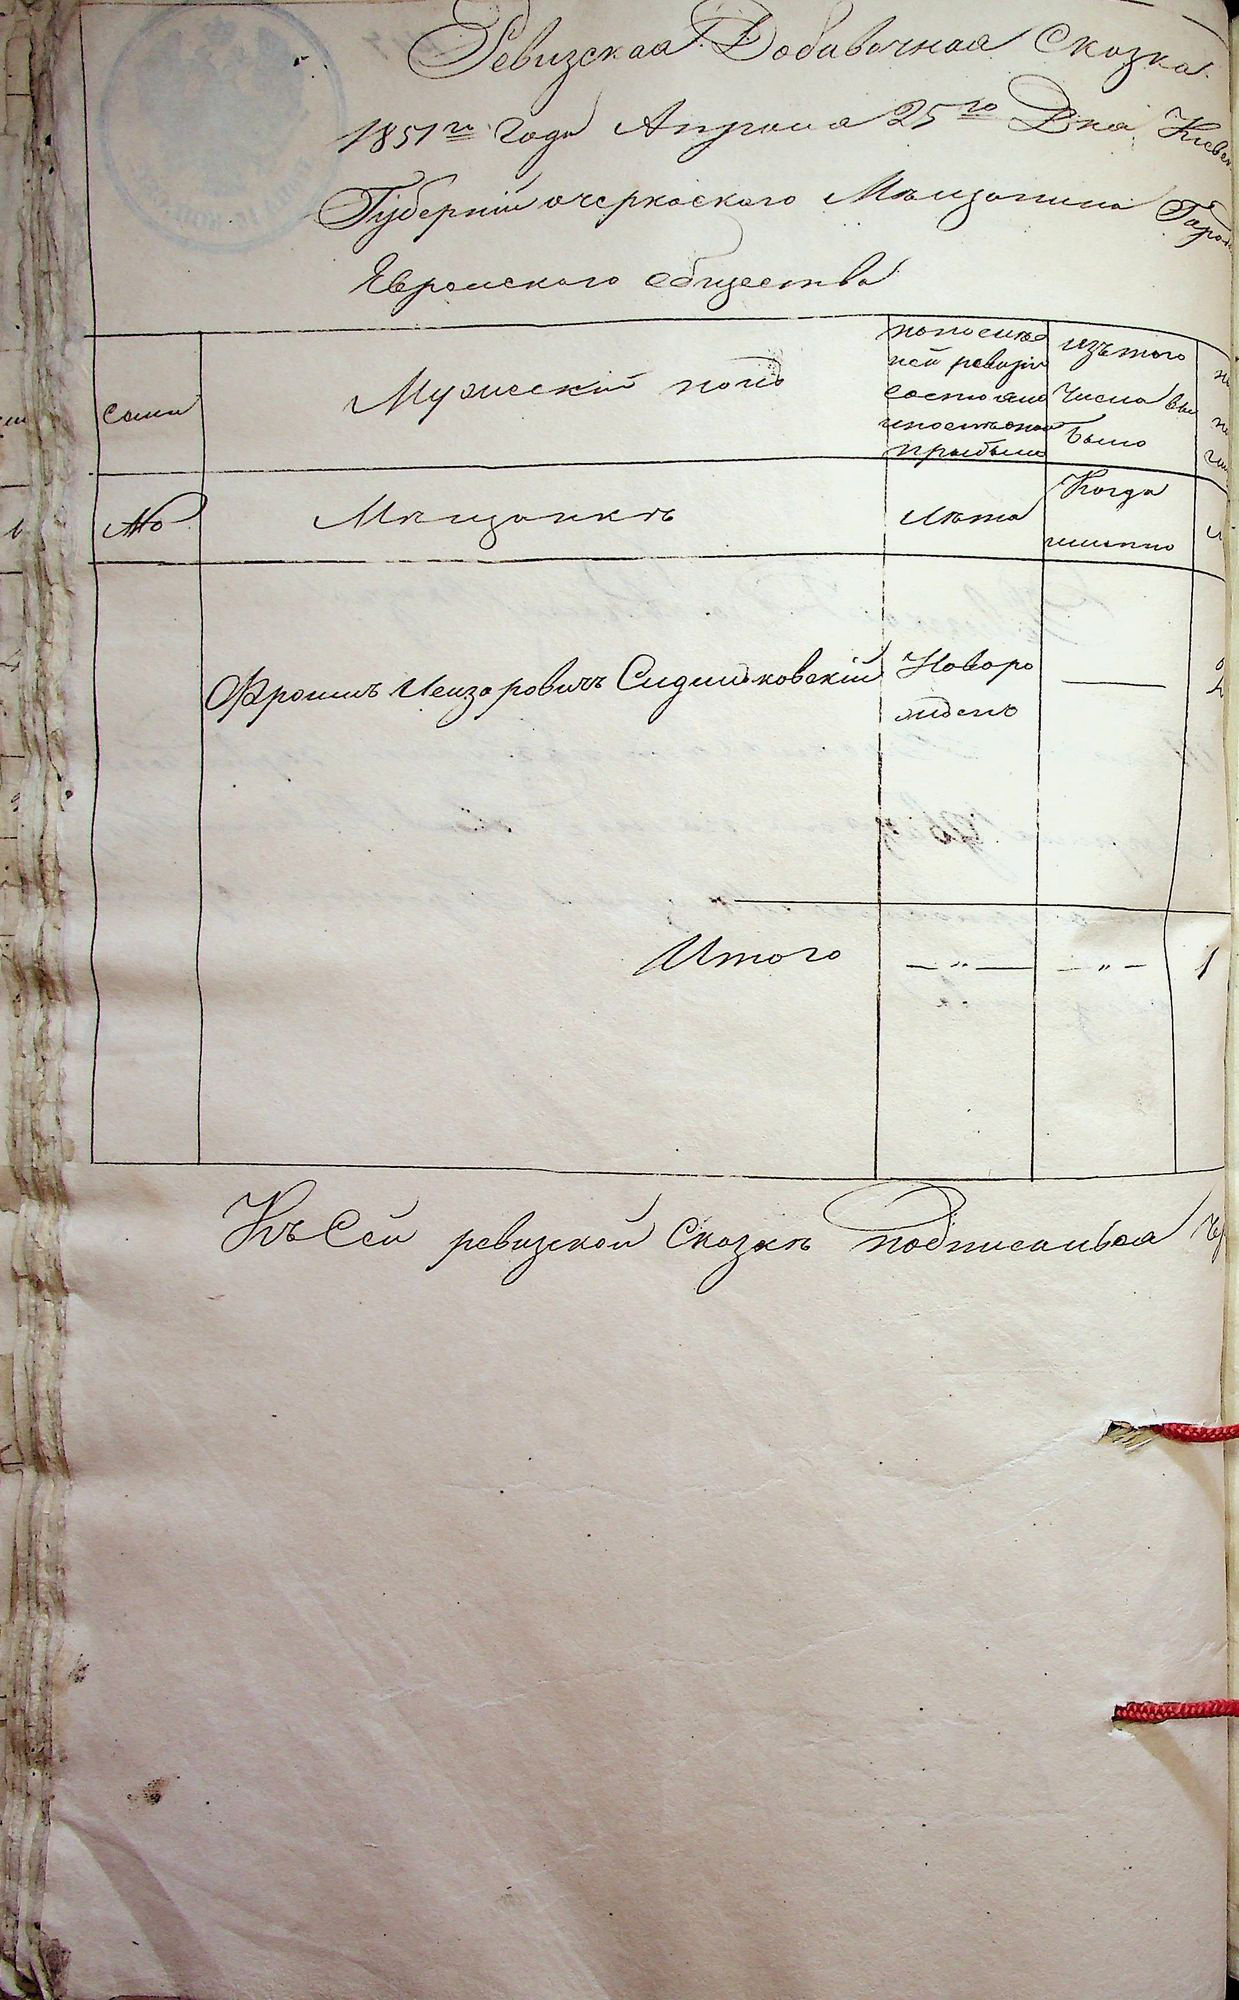 Ревизская Добавочная Сказка
1851го года Апреля 25го Дня Киевск
Губерній очеркаского Мещанина Город
Евреиского общества
Семи
Мужескій полъ
попослѣд
ней ревизіи
состояло
ипослѣоной
прибыло
изътого
Числа вы
было
№
Мѣщанинъ
Лѣта
Когда
имянно
Фроимъ Леизоровичъ Сидликовскій
Новоро
жденъ
Итого — „ — — „ — 1
Къ Сей ревизской Сказкѣ подписался